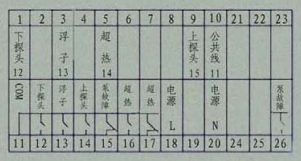 1 2 3 4 5 6 7 8 9 10 21 22 23
下探头 12
浮子 13
超热 14
上探头 15
公共线 11
COM
下探头
浮子
上探头
泵故障
超热
超热
电源 L
电源 N
泵故障
11 12 13 14 15 16 17 18 19 20 24 25 26